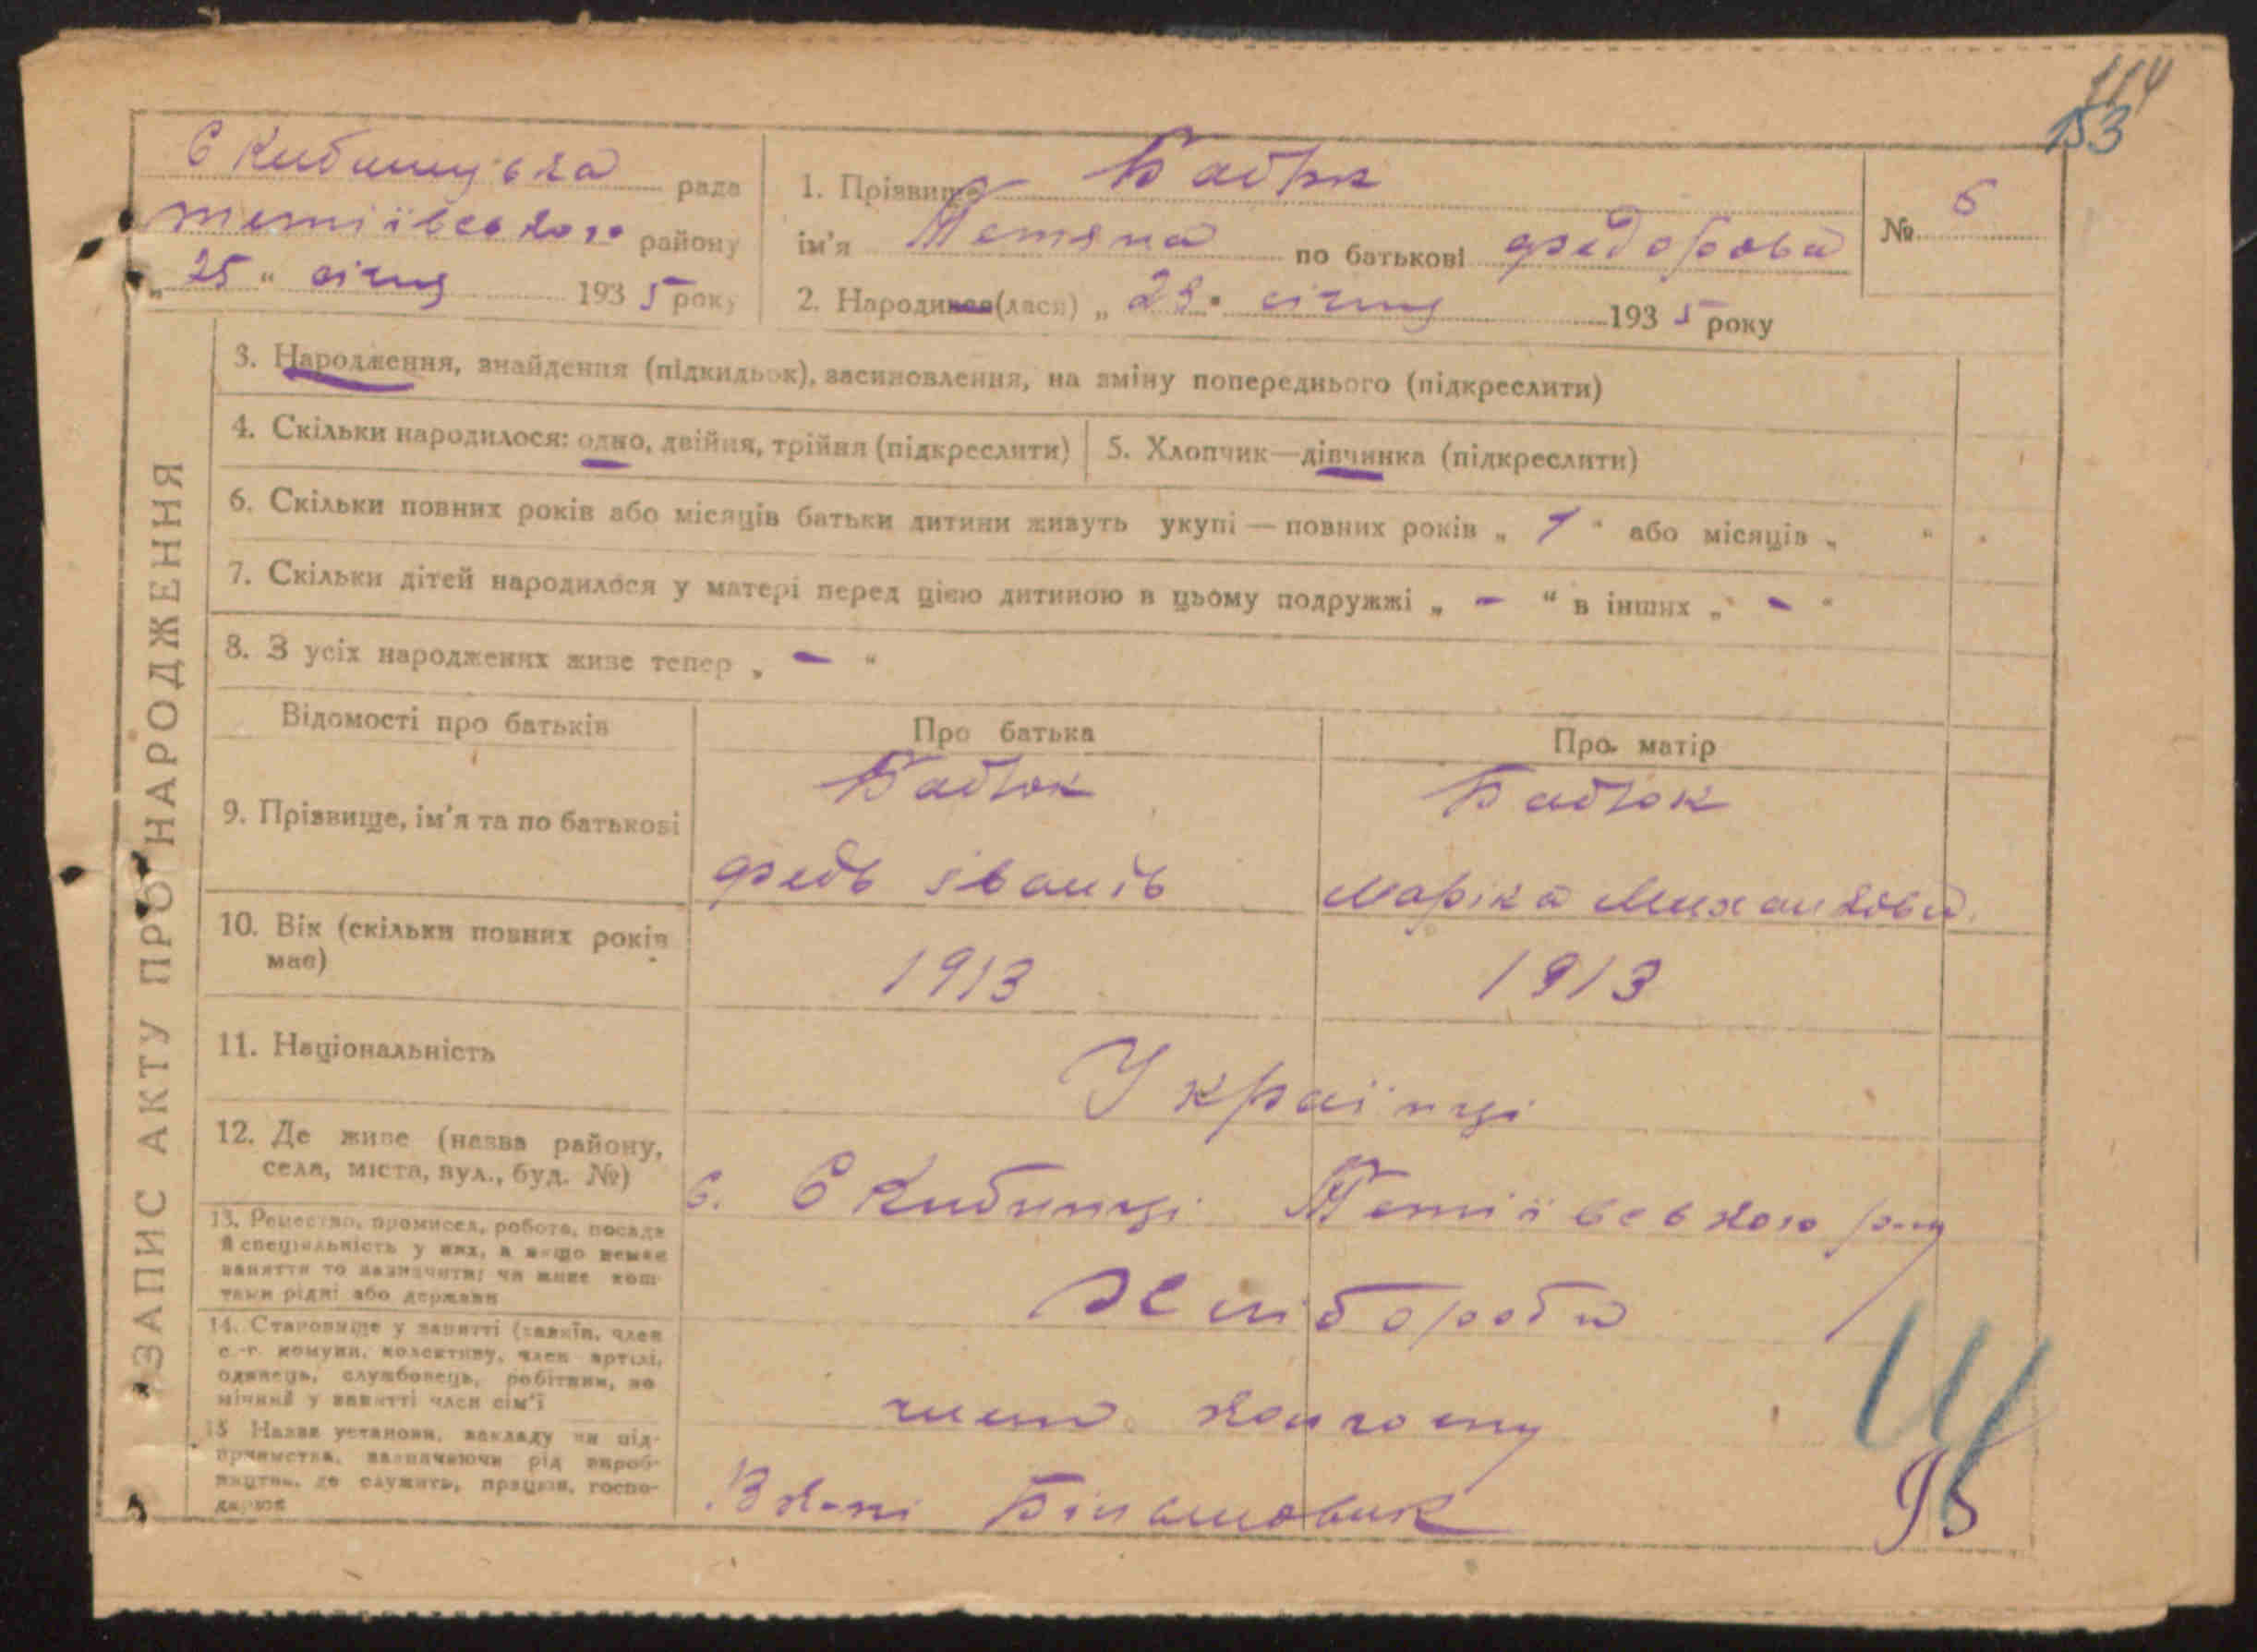 114
153
Скибинцівка рада
Тетіївського району
„ 25 “ січня 1935 року
1. Прізвище Бабюк
ім'я Тетяна по батькові Федорова
№ 5
2. Народився(лася) „ 23 “ січня 1935 року
ЗАПИС АКТУ ПРО НАРОДЖЕННЯ
3. Народження, знайдення (підкидьок), засиновлення, на зміну попереднього (підкреслити)
4. Скільки народилося: одно, двійня, трійня (підкреслити)
5. Хлопчик—дівчинка (підкреслити)
6. Скільки повних років або місяців батьки дитини живуть укупі — повних років „ 1 “ або місяців „ “
7. Скільки дітей народилося у матері перед цією дитиною в цьому подружжі „ - “ в інших „ - “
8. З усіх народжених живе тепер „ - “
Відомості про батьків
Про батька
Про матір
9. Прізвище, ім'я та по батькові
Бабюк
Федь Іванів
Бабюк
Маріка Михайлова
10. Вік (скільки повних років має)
1913
1913
11. Національність
Українці
12. Де живе (назва району, села, міста, вул., буд. №)
с. Скибинці Тетіївського р-ну
13. Ремество, промисел, робота, посада й спеціяльність у них, а якщо немає заняття то зазначити: чи живе коштами рідні або держави
Хлібороби
14. Становище у занятті (хазяїн, член с.-г. комуни, колективу, член артілі, одинець, службовець, робітник, помічний у занятті член сім'ї
члени колгоспу
15 Назва установи, закладу чи підприємства, зазначаючи рід виробництва, де служить, працює, господарює
В кол-пі Більшовик